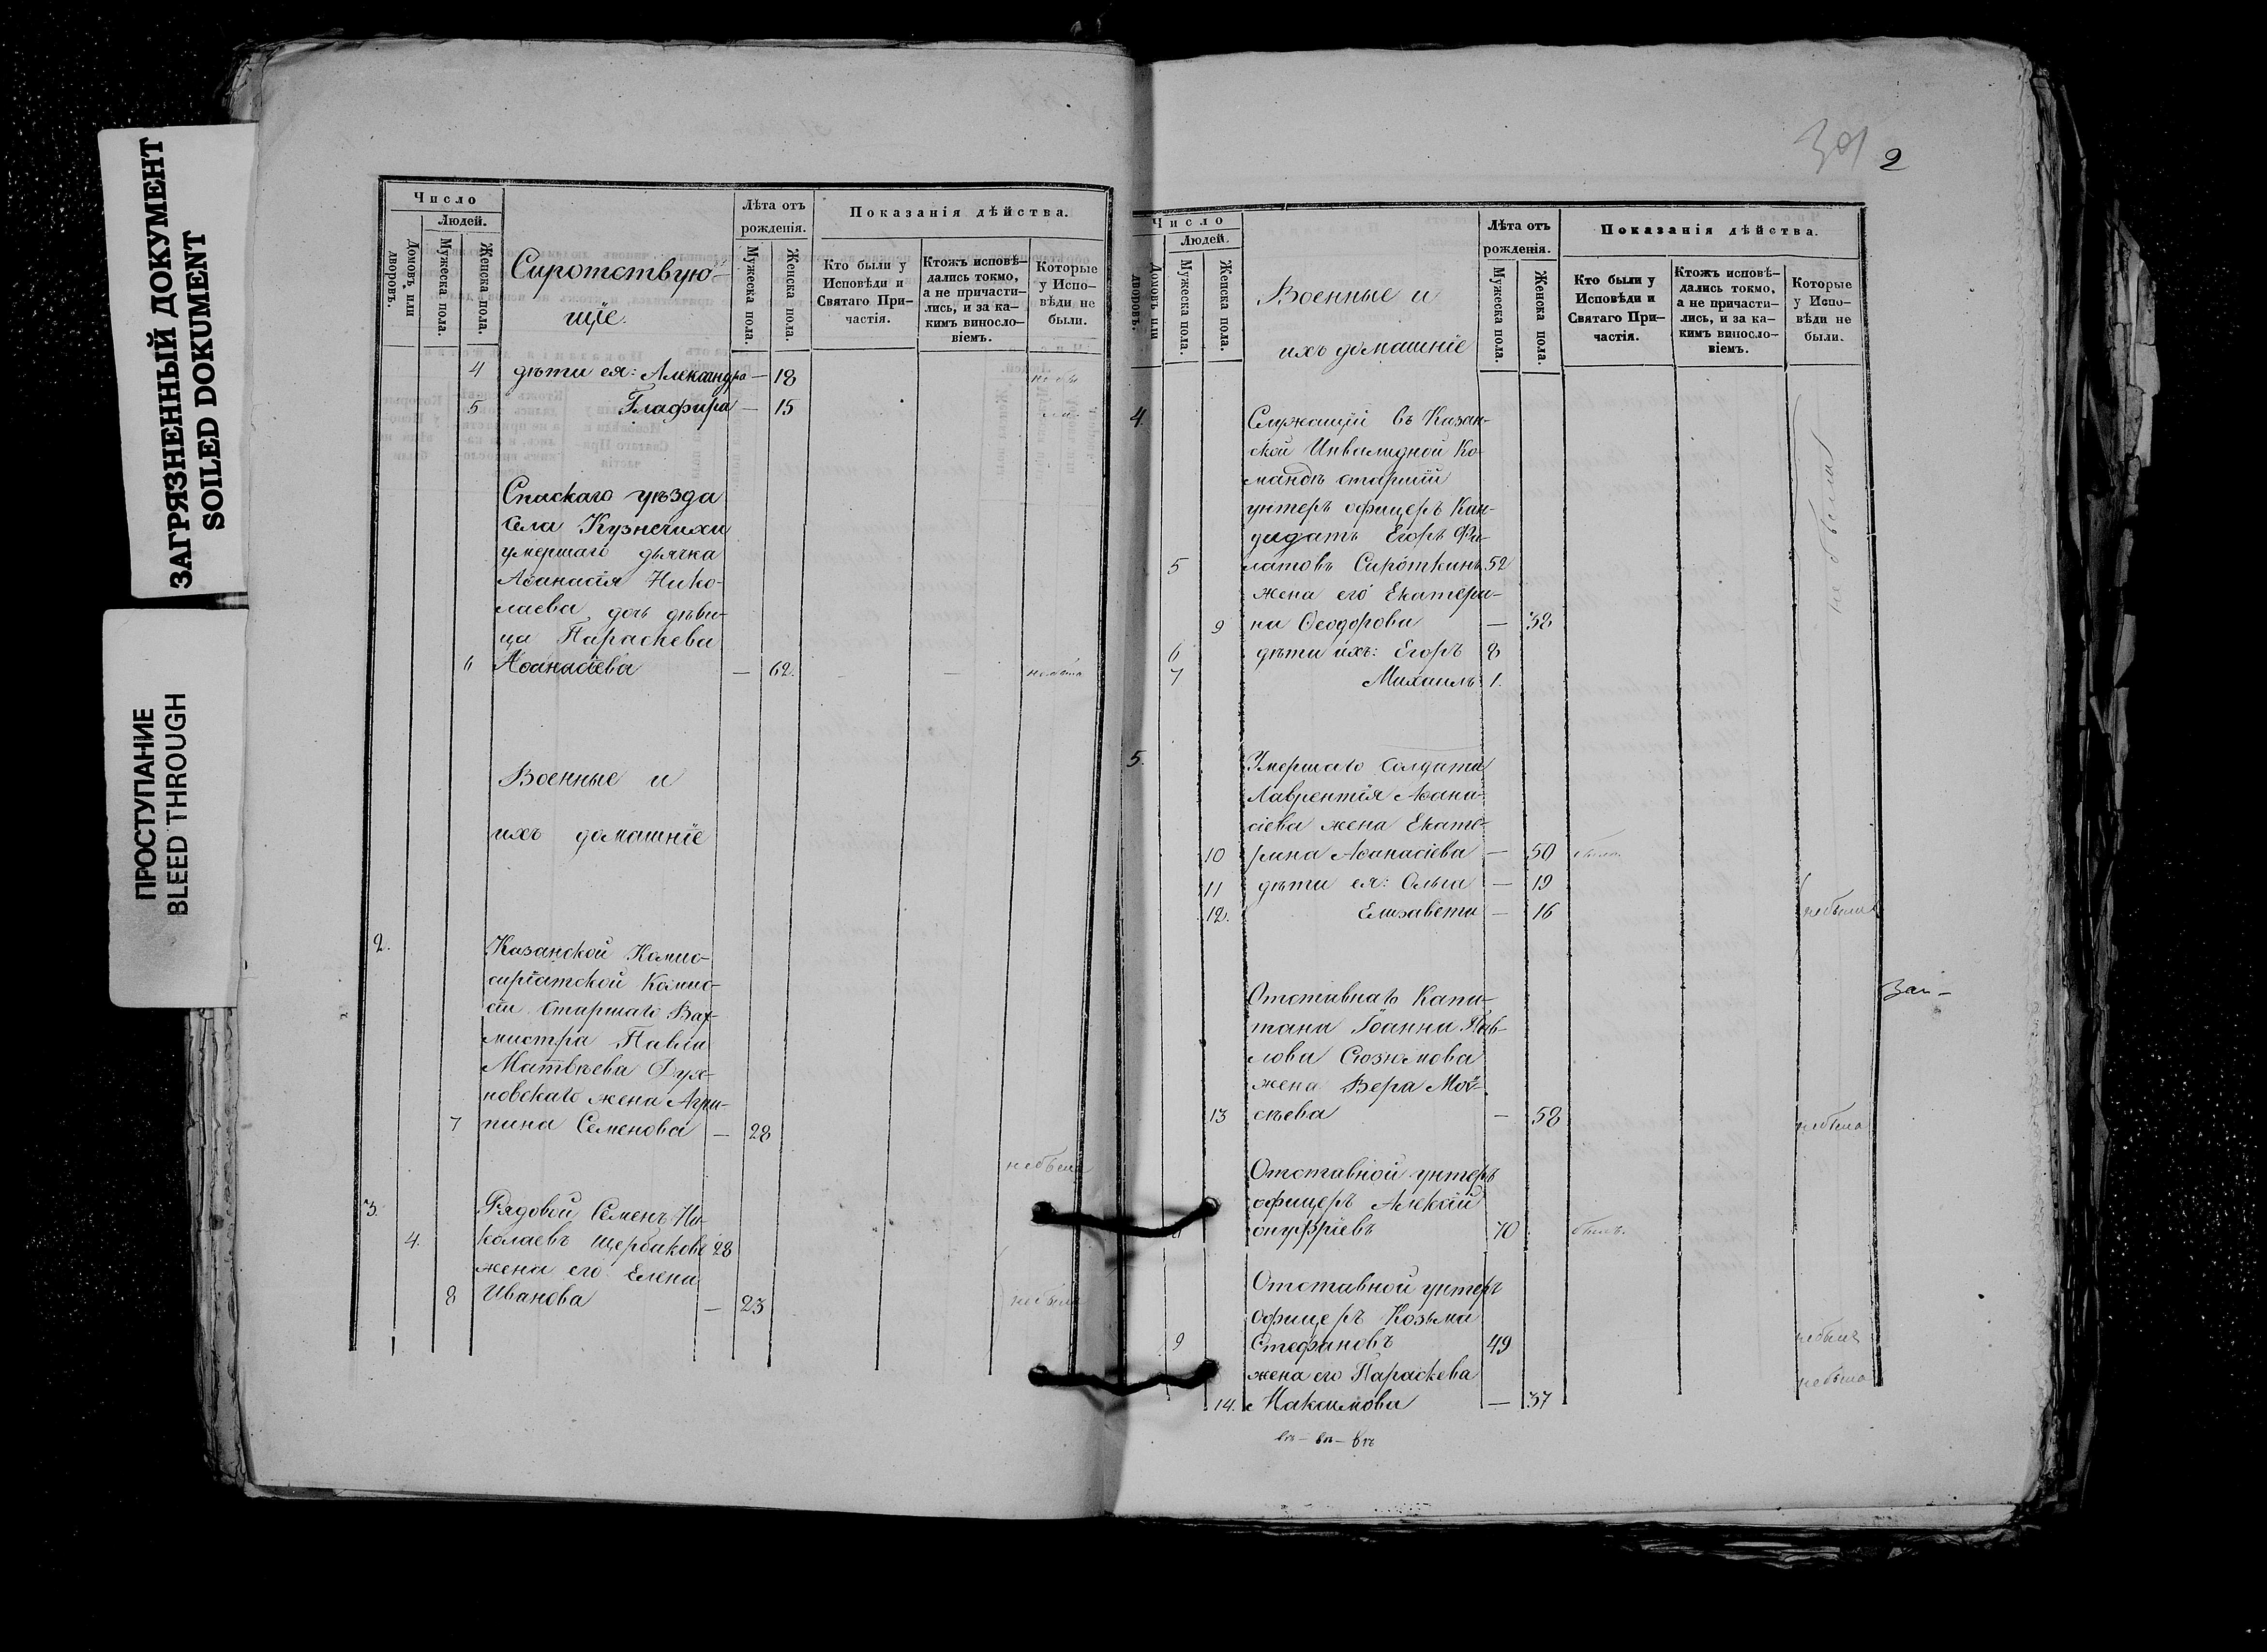 ЗАГРЯЗНЕННЫЙ ДОКУМЕНТ
SOILED DOKUMENT
ПРОСТУПАНИЕ
BLEED THROUGH
Число
Людей.
Домовъ или дворовъ.
Мужеска пола.
Женска пола.
Сиротствую-
щіе.
Лѣта отъ рожденія.
Мужеска пола.
Женска пола.
Показанія дѣйства.
Кто были у Исповѣди и Святаго При-частія.
Ктожъ исповѣ-дались токмо, а не причасти-лись, и за ка-кимъ винословіемъ.
Которые у Испо-вѣди не были.
4 дѣти ея: Александра — 18
5 Глафира — 15
Спаскаго уѣзда
села Кузнечихи
умершаго дьячка
Аѳанасія Нико-
лаева дочь дѣви-
ца Параскева
6 Аѳанасіева — 62. не была
Военные и
ихъ домашніе
2. Казанской Комис-
саріатской Комис-
сіи Старшаго Вах-
мистра Павла
Матвѣева Дух-
новскаго жена Агри-
7 пина Семенова — 28
не была
3. Рядовой Семенъ Ни-
4. колаевъ Щербаковъ 28
жена его Елена
8 Иванова — 23 не была
301 2
Число
Людей.
Домовъ или дворовъ.
Мужеска пола.
Женска пола.
Военные и
ихъ домашніе
Лѣта отъ рожденія.
Мужеска пола.
Женска пола.
Показанія дѣйства.
Кто были у Исповѣди и Святаго При-частія.
Ктожъ исповѣ-дались токмо, а не причасти-лись, и за ка-кимъ винословіемъ.
Которые у Испо-вѣди не были.
4. Служащій въ Казан-
ской Инвалидной Ко-
мандѣ старшій
унтеръ офицеръ Кан-
дидатъ Егоръ Фи-
5 латовъ Сироткинъ 52
жена его Екатери-
9 на Ѳеодорова — 38
6 дѣти ихъ: Егоръ 8
7 Михаилъ 1.
не были
5. Умершаго Солдата
Лаврентія Аѳана-
сіева жена Екате-
10 рина Аѳанасіева — 50 была
11 дѣти ея: Ольга — 19
12. Елизавета — 16 не были
Отставнаго Капи-
тана Іоанна Пав-
лова Сюзюмова
жена Вера Мои-
13 сѣева — 58 не была
Отставной унтеръ
офицеръ Алексій
8 Онуфріевъ 70 былъ.
Отставной унтеръ
офицеръ Козьма
9 Стефановъ 49 не былъ
жена его Параскева
14. Максимова — 37 не была